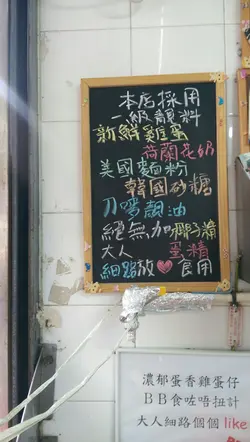 本店採用
一級靚料
新鮮雞蛋
荷蘭花奶
美國麵粉
韓國砂糖
刀嘜靚油
絕無加椰子滷
大人 蛋精
細路放❤食用
濃郁蛋香雞蛋仔
BB食咗唔扭計
大人細路個個like